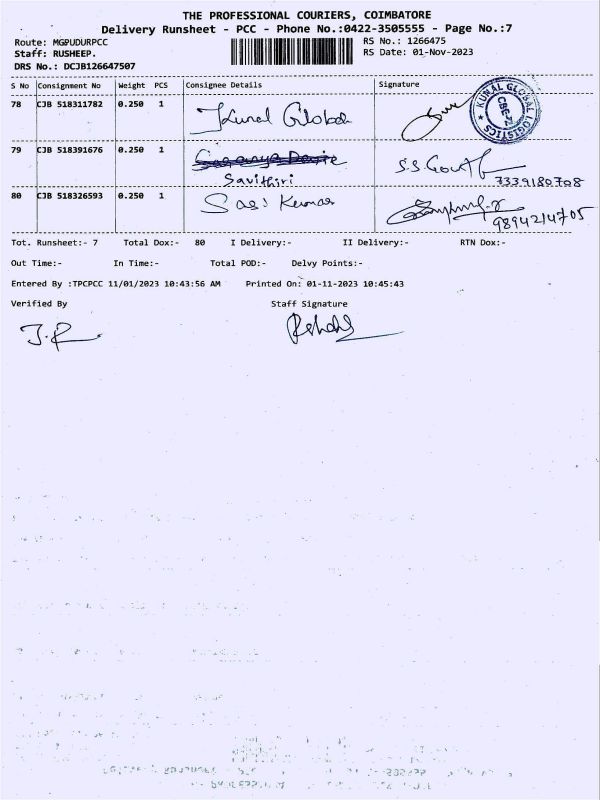 THE PROFESSIONAL COURIERS, COIMBATORE
Delivery Runsheet - PCC - Phone No.:0422-3505555 - Page No.:7
Route: MGPUDURPCC RS No.: 1266475
Staff: RUSHEEP. RS Date: 01-Nov-2023
DRS No.: DCJB126647507
S No Consignment No Weight PCS Consignee Details Signature
78 CJB 518311782 0.250 1 Kunal Global
KUNAL GLOBAL LOGISTICS
79 CJB 518391676 0.250 1
Savithiri 7339180708
80 CJB 518326593 0.250 1 Sasi Kumar
9894214705
Tot. Runsheet:- 7 Total Dox:- 80 I Delivery:- II Delivery:- RTN Dox:-
Out Time:- In Time:- Total POD:- Delvy Points:-
Entered By :TPCPCC 11/01/2023 10:43:56 AM Printed On: 01-11-2023 10:45:43
Verified By Staff Signature